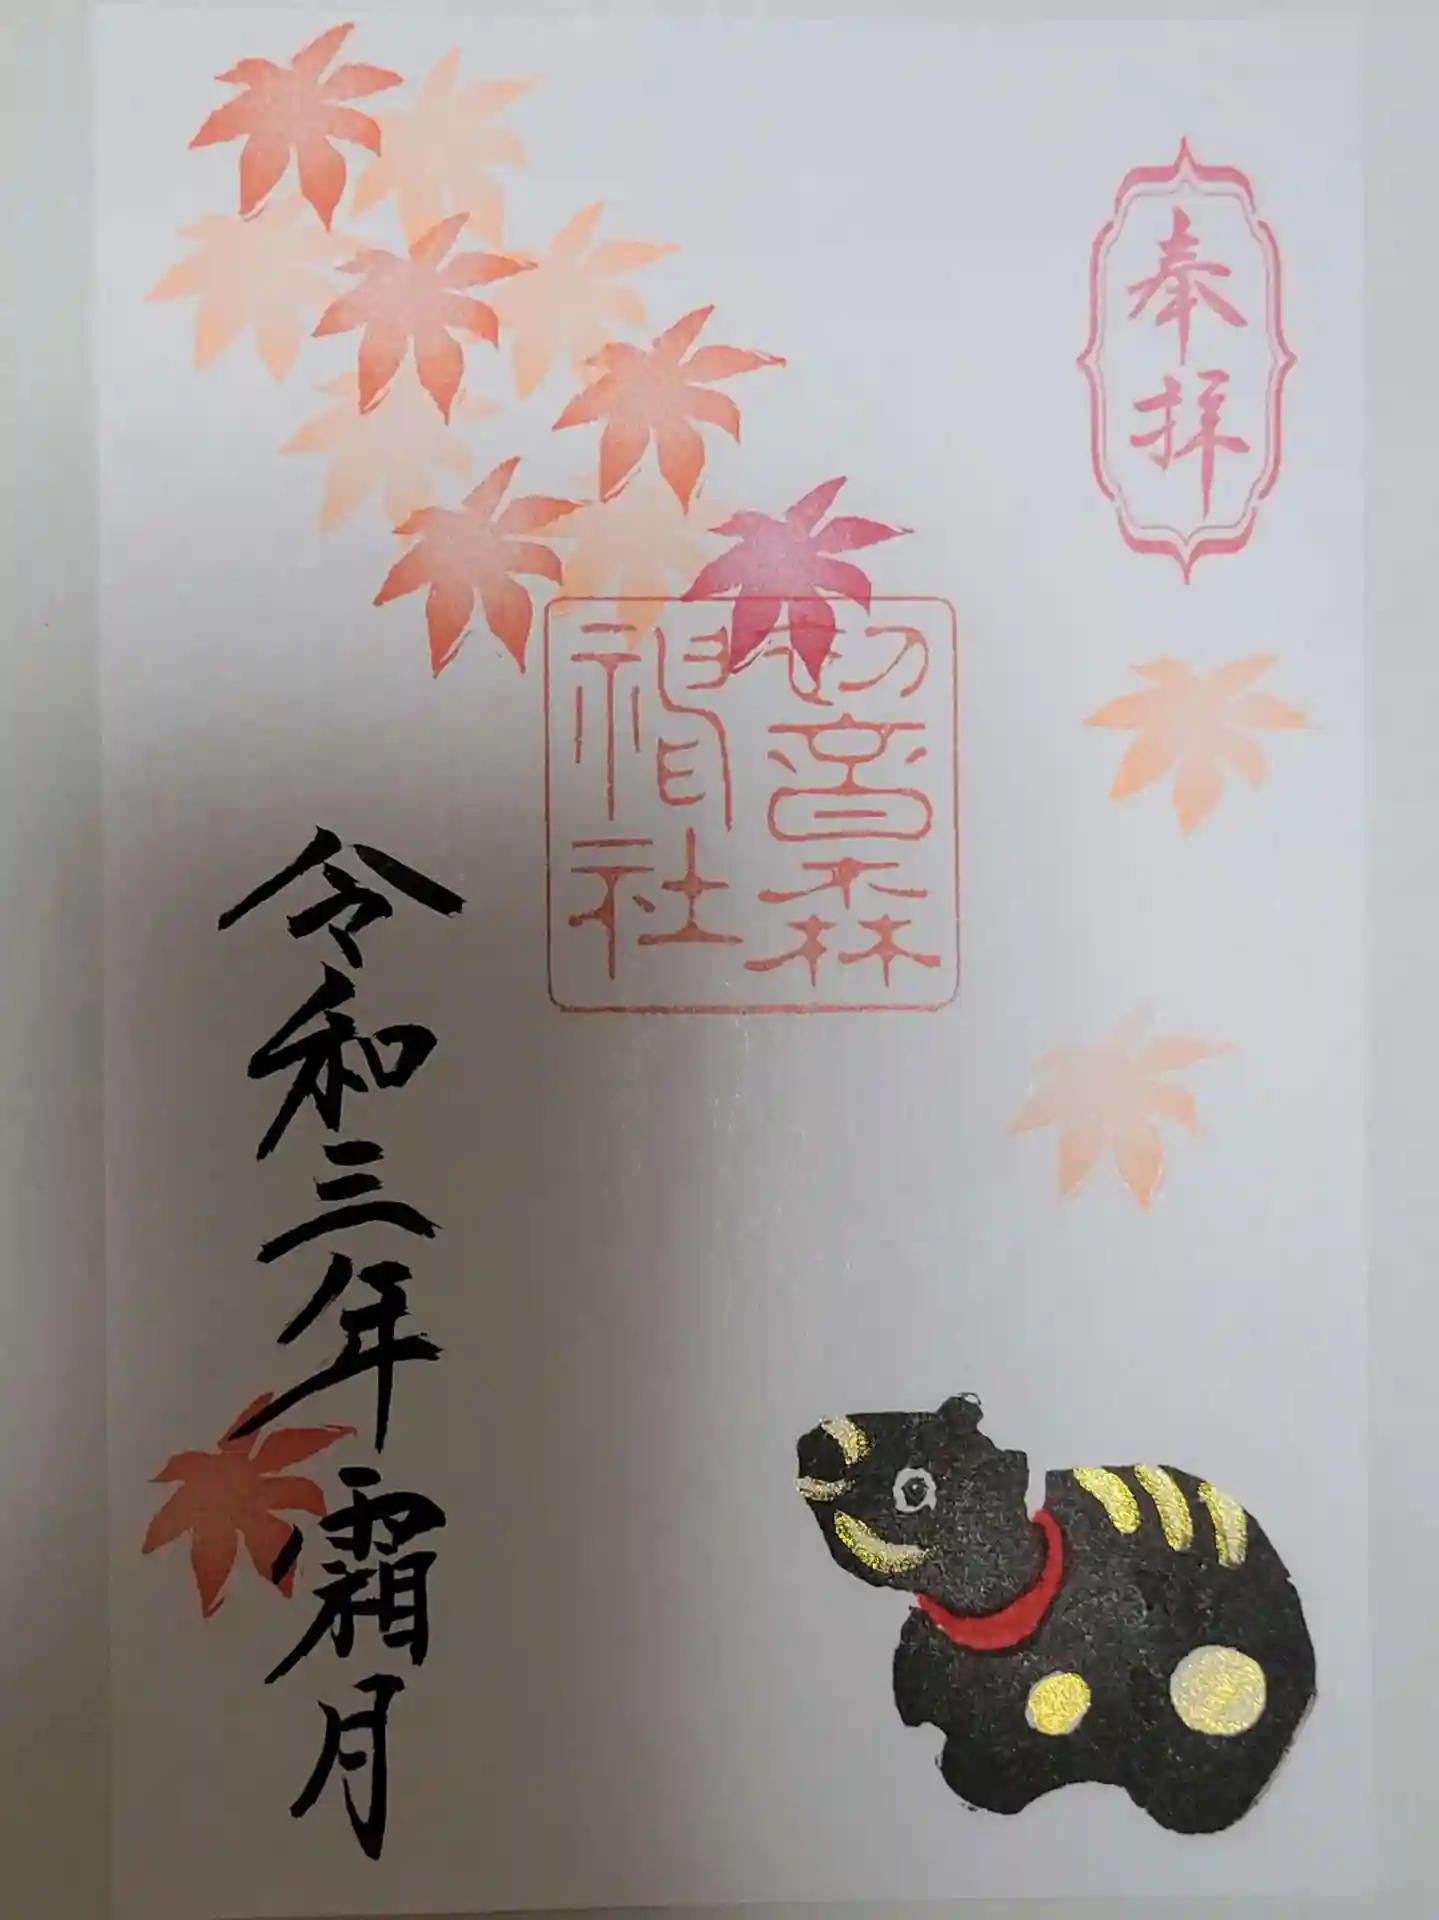 奉拝
初音森
神社
令和三年霜月